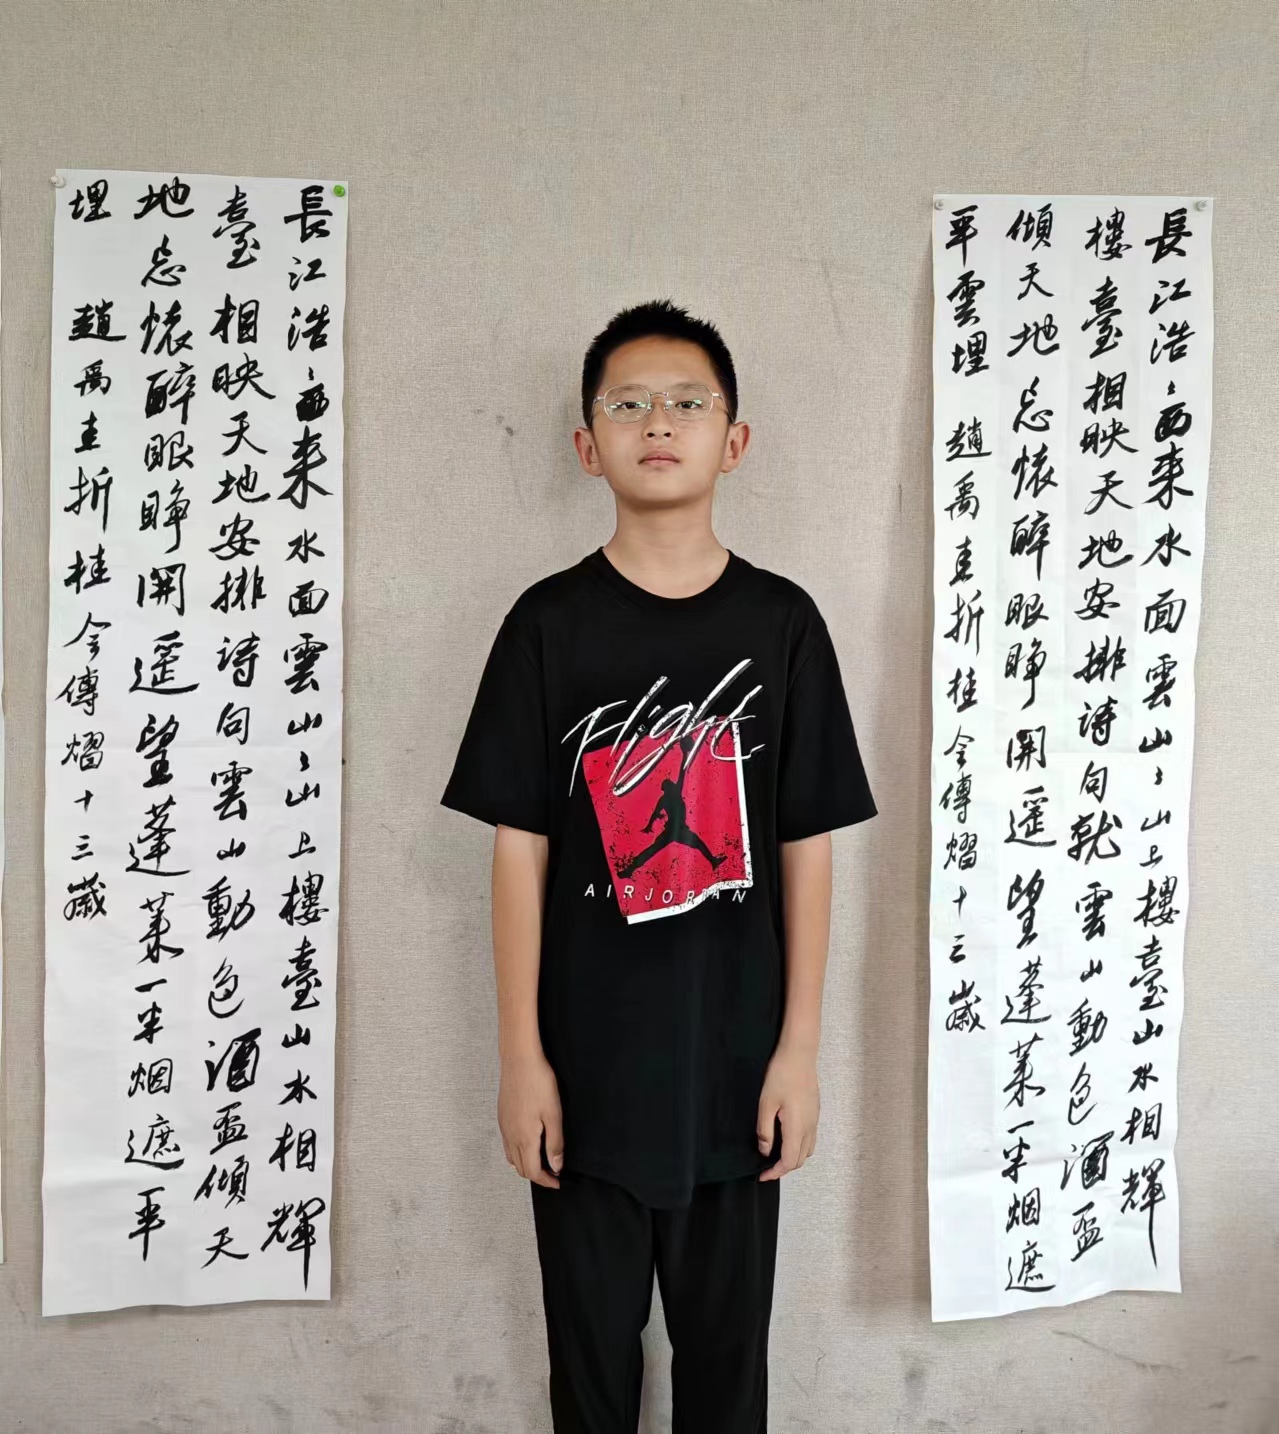 長江浩〻西来水面雲山〻山上樓臺山水相輝
臺相映天地安排詩句雲山動色酒盃傾天
地忘懷醉眼睁開遥望蓬莱一半烟遮平
埋 趙禹圭折桂令傅熠十三歲
Flight
AIR JORDAN
長江浩〻西来水面雲山〻山上樓臺山水相輝
樓臺相映天地安排詩句就雲山動色酒盃
傾天地忘懷醉眼睁開遥望蓬莱一半烟遮
平雲埋 趙禹圭折桂令傅熠十三歲